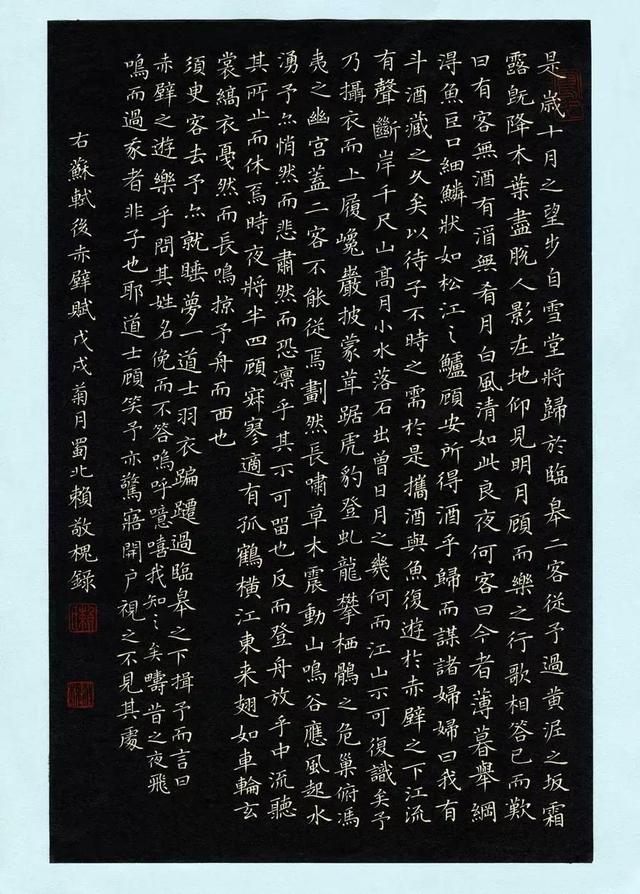 是歲十月之望步自雪堂將歸於臨皋二客從予過黄泥之坂霜
露既降木葉盡脫人影在地仰見明月顧而樂之行歌相答已而歎
曰有客無酒有酒無肴月白風清如此良夜何客曰今者薄暮舉網
得魚巨口細鱗狀如松江之鱸顧安所得酒乎歸而謀諸婦婦曰我有
斗酒藏之久矣以待子不時之需於是攜酒與魚復遊於赤壁之下江流
有聲斷岸千尺山高月小水落石出曾日月之幾何而江山不可復識矣予
乃攝衣而上履巉巖披蒙茸踞虎豹登虬龍攀栖鶻之危巢俯馮
夷之幽宮蓋二客不能從焉劃然長嘯草木震動山鳴谷應風起水
湧予亦悄然而悲肅然而恐凛乎其不可留也反而登舟放乎中流聽
其所止而休焉時夜將半四顧寂寥適有孤鶴橫江東来翅如車輪玄
裳縞衣戛然而長鳴掠予舟而西也
須臾客去予亦就睡夢一道士羽衣蹁躚過臨皋之下揖予而言曰
赤壁之遊樂乎問其姓名俛而不答嗚呼噫嘻我知之矣疇昔之夜飛
鳴而過我者非子也耶道士顧笑予亦驚寤開户視之不見其處
右蘇軾後赤壁賦戊戌菊月蜀北賴敬槐錄